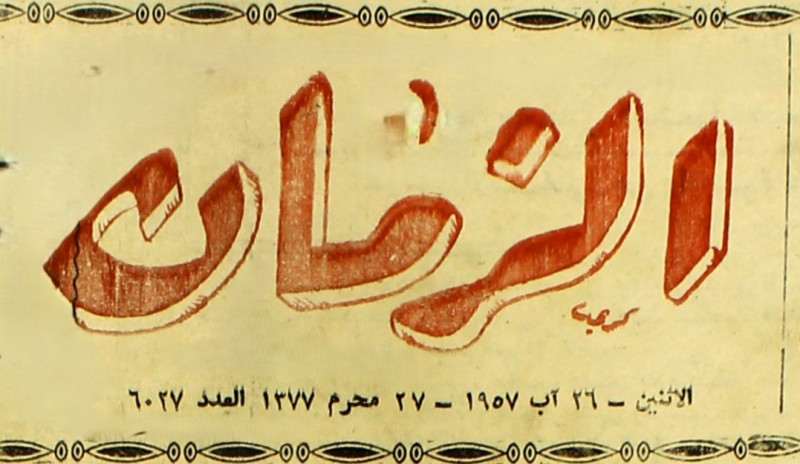 الزمان
كريم
الاثنين – ٢٦ آب ١٩٥٧ – ٢٧ محرم ١٣٧٧ العدد ٦٠٢٧